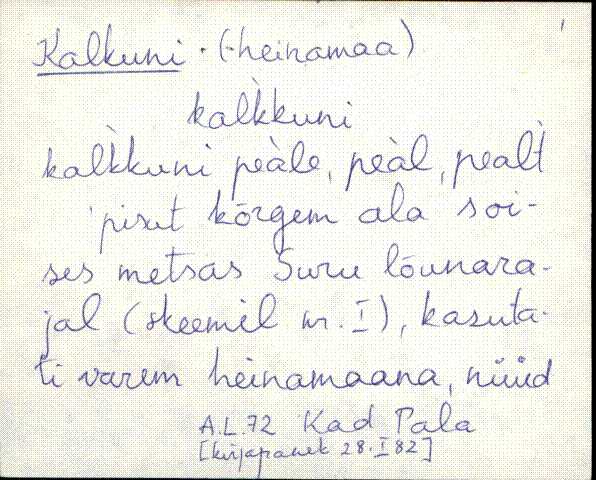 1
Kalkuni · (-heinamaa)
kal̀kkuni
kal̀kkuni peàle, peàl, pealt̀
pisut kõrgem ala soi-
ses metsas Suru lõunara-
jal (skeemil nr. I), kasuta-
ti varem heinamaana, nüüd
A.L.72 Kad Pala
[kirjapanek 28.I 82]